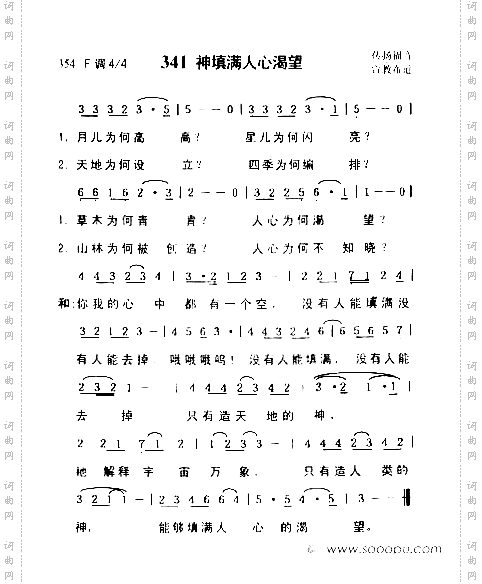 354 F 调 4/4 341 神填满人心渴望 传扬福音
宣教布道
3 3 3 2 3 · 5 | 5 - - 0 | 3 3 3 2 3 · 1 | 5 - - 0 |
1. 月儿为何高 高? 星儿为何闪 亮?
2. 天地为何设 立? 四季为何编 排?
6 6 1 6 2 · 3 | 2 - - 0 | 3 2 2 5 6 · 1 | 1 - - 0 |
1. 草木为何青 青? 人心为何渴 望?
2. 山林为何被 创造? 人心为何不 知晓?
4 4 3 2 3 4 | 3 · 2 1 2 3 - | 2 2 1 7 1 2 4 |
和: 你我的心 中 都 有一个空, 没有人能填满没
3 2 1 2 3 - | 5 · 5 5 3 · | 4 4 3 2 4 6 | 6 5 6 5 7 |
有人能去掉, 哦哦哦呜! 没有人能填满, 没有人能
2 3 2 1 - | 4 4 4 2 3 4 | 3 · 2 1 · 1 |
去 掉 只有造天 地的 神,
2 2 1 7 1 2 | 3 2 1 2 3 - | 4 4 4 2 3 4 |
祂 解释 宇 宙 万 象, 只有造人 类的
3 2 1 1 - | 2 3 4 6 6 4 | 5 4 3 2 | 1 - -
神, 能够填满人 心 的渴 望。
www.sooopu.com
词曲网
词曲网
词曲网
词曲网
词曲网
词曲网
词曲网
词曲网